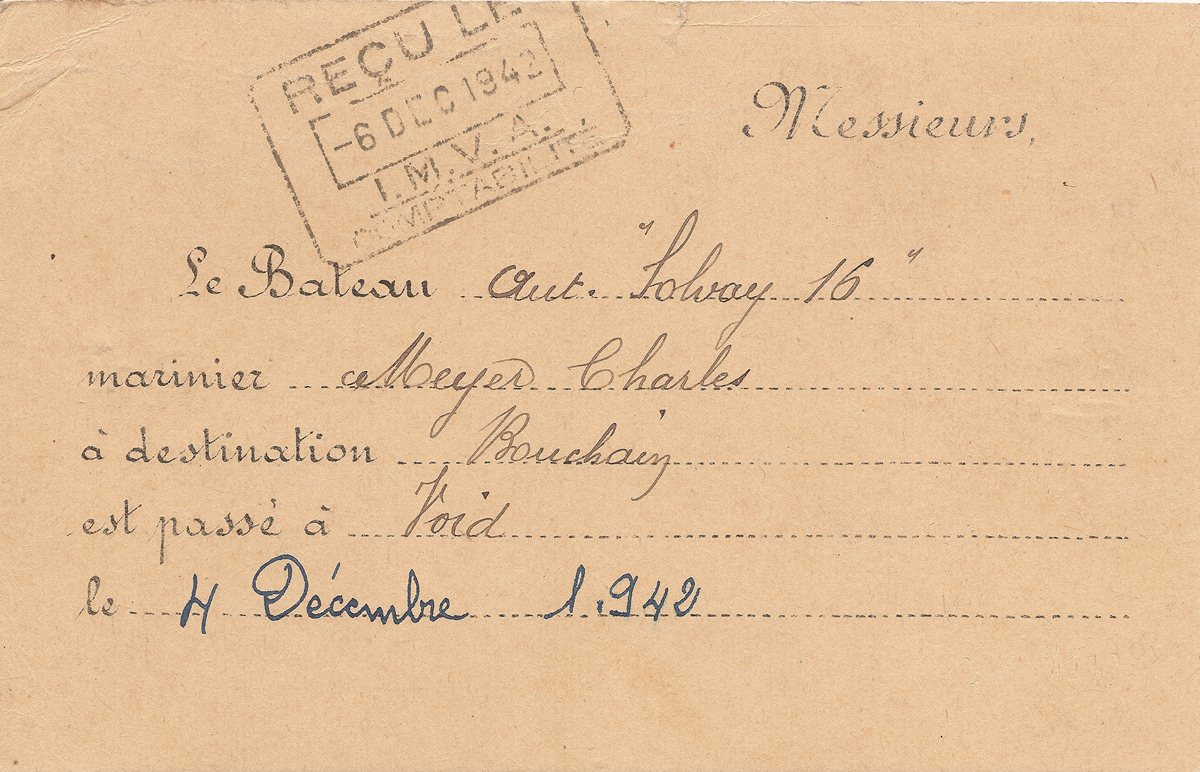 REÇU LE
-6 DEC 1942
I.M.V.A.
COMPTABILITÉ
Messieurs,
Le Bateau Aut. "Solvay 16"
marinier Meyer Charles
à destination Bouchain
est passé à Void
le 4 Décembre 1.942